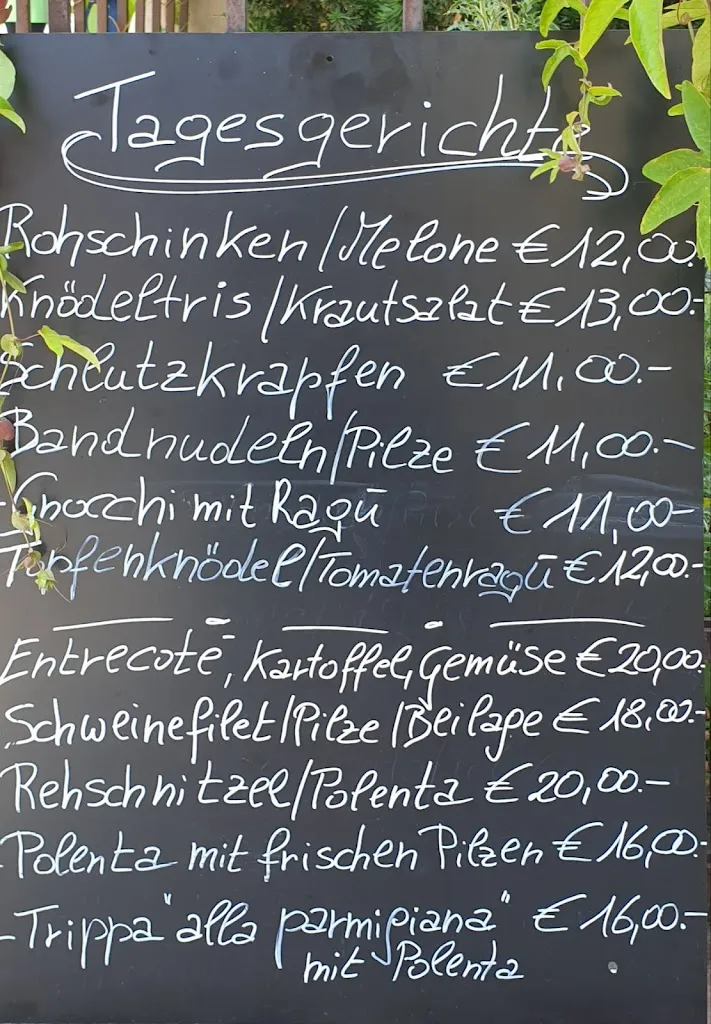 Tagesgerichte
Rohschinken/Melone € 12,00.-
Knödeltris/Krautsalat € 13,00.-
Schlutzkrapfen € 11,00.-
Bandnudeln/Pilze € 11,00.-
-Gnocchi mit Ragū € 11,00-
Topfenknödel/Tomatenragū € 12,00.-
Entrecotē, Kartoffel, Gemüse € 20,00.-
Schweinefilet/Pilze/Beilage € 18,00.-
Rehschnitzel/Polenta € 20,00.-
-Polenta mit frischen Pilzen € 16,00.-
-Trippa "alla parmigiana" € 16,00.-
mit Polenta